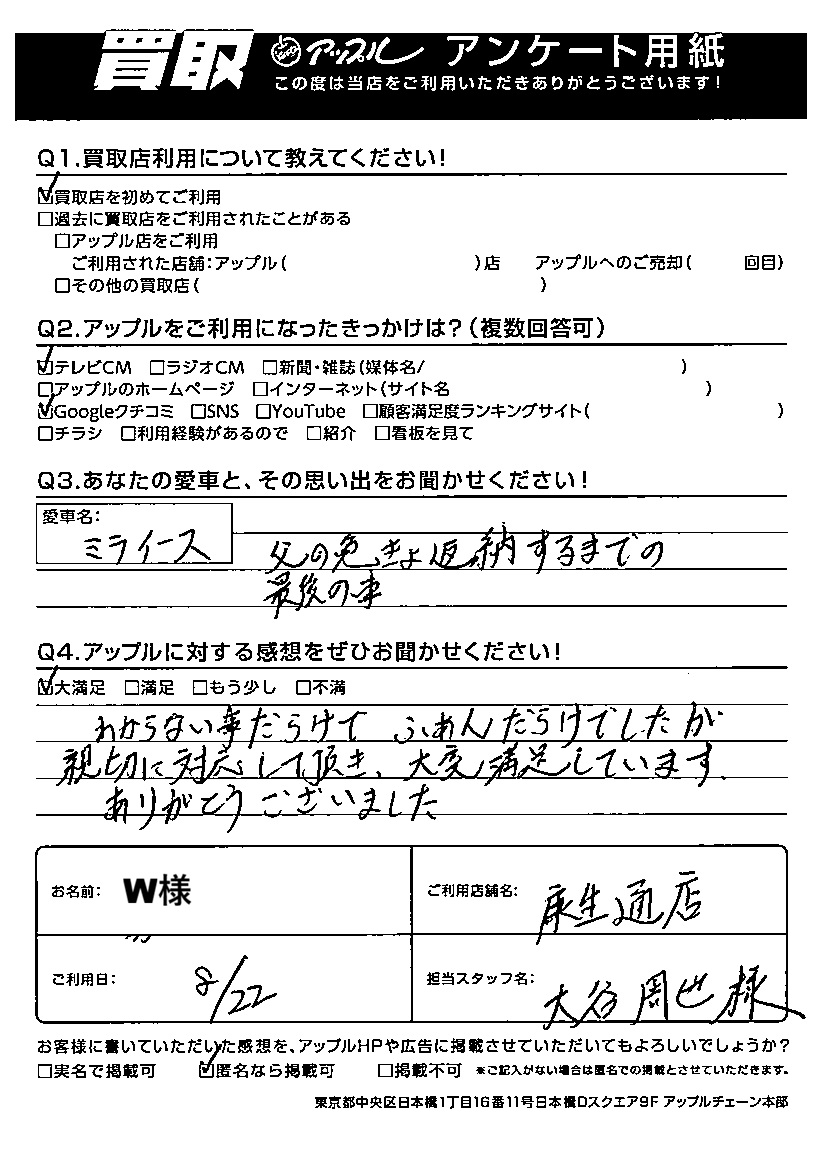 買取 アップル アンケート用紙
この度は当店をご利用いただきありがとうございます!
Q1.買取店利用について教えてください!
☑買取店を初めてご利用
□過去に買取店をご利用されたことがある
□アップル店をご利用
ご利用された店舗:アップル( )店 アップルへのご売却( 回目)
□その他の買取店( )
Q2.アップルをご利用になったきっかけは?(複数回答可)
☑テレビCM □ラジオCM □新聞・雑誌(媒体名/ )
□アップルのホームページ □インターネット(サイト名 )
☑Googleクチコミ □SNS □YouTube □顧客満足度ランキングサイト( )
□チラシ □利用経験があるので □紹介 □看板を見て
Q3.あなたの愛車と、その思い出をお聞かせください!
愛車名:
ミライース
父の免きょ返納するまでの
最後の車
Q4.アップルに対する感想をぜひお聞かせください!
☑大満足 □満足 □もう少し □不満
わからない事だらけで ふあんだらけでしたが
親切に対応して頂き、大変満足しています。
ありがとうございました
お名前: W様
ご利用店舗名: 康生通店
ご利用日: 8/22
担当スタッフ名: 大谷周也様
お客様に書いていただいた感想を、アップルHPや広告に掲載させていただいてもよろしいでしょうか?
□実名で掲載可 ☑匿名なら掲載可 □掲載不可 *ご記入がない場合は匿名での掲載とさせていただきます。
東京都中央区日本橋1丁目16番11号日本橋Dスクエア9F アップルチェーン本部